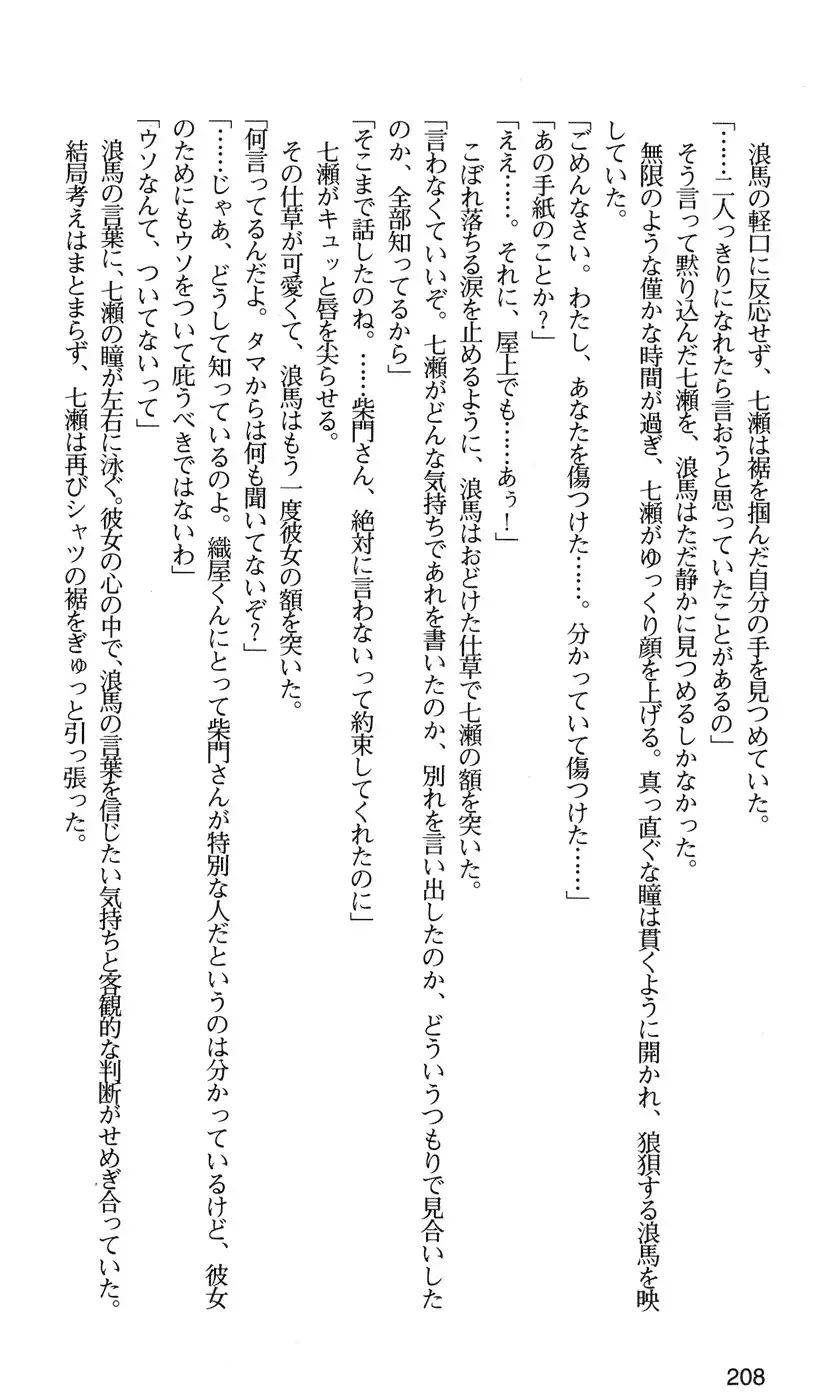 浪馬の軽口に反応せず、七瀬は裾を掴んだ自分の手を見つめていた。
「……二人っきりになれたら言おうと思っていたことがあるの」
　そう言って黙り込んだ七瀬を、浪馬はただ静かに見つめるしかなかった。
　無限のような僅かな時間が過ぎ、七瀬がゆっくり顔を上げる。真っ直ぐな瞳は貫くように開かれ、狼狽する浪馬を映
していた。
「ごめんなさい。わたし、あなたを傷つけた……。分かっていて傷つけた……」
「あの手紙のことか？」
「ええ……。それに、屋上でも……あぅ！」
　こぼれ落ちる涙を止めるように、浪馬はおどけた仕草で七瀬の額を突いた。
「言わなくていいぞ。七瀬がどんな気持ちであれを書いたのか、別れを言い出したのか、どういうつもりで見合いした
のか、全部知ってるから」
「そこまで話したのね。……柴門さん、絶対に言わないって約束してくれたのに」
　七瀬がキュッと唇を尖らせる。
　その仕草が可愛くて、浪馬はもう一度彼女の額を突いた。
「何言ってるんだよ。タマからは何も聞いてないぞ？」
「……じゃあ、どうして知っているのよ。織屋くんにとって柴門さんが特別な人だというのは分かっているけど、彼女
のためにもウソをついて庇うべきではないわ」
「ウソなんて、ついてないって」
　浪馬の言葉に、七瀬の瞳が左右に泳ぐ。彼女の心の中で、浪馬の言葉を信じたい気持ちと客観的な判断がせめぎ合っていた。
　結局考えはまとまらず、七瀬は再びシャツの裾をぎゅっと引っ張った。
208